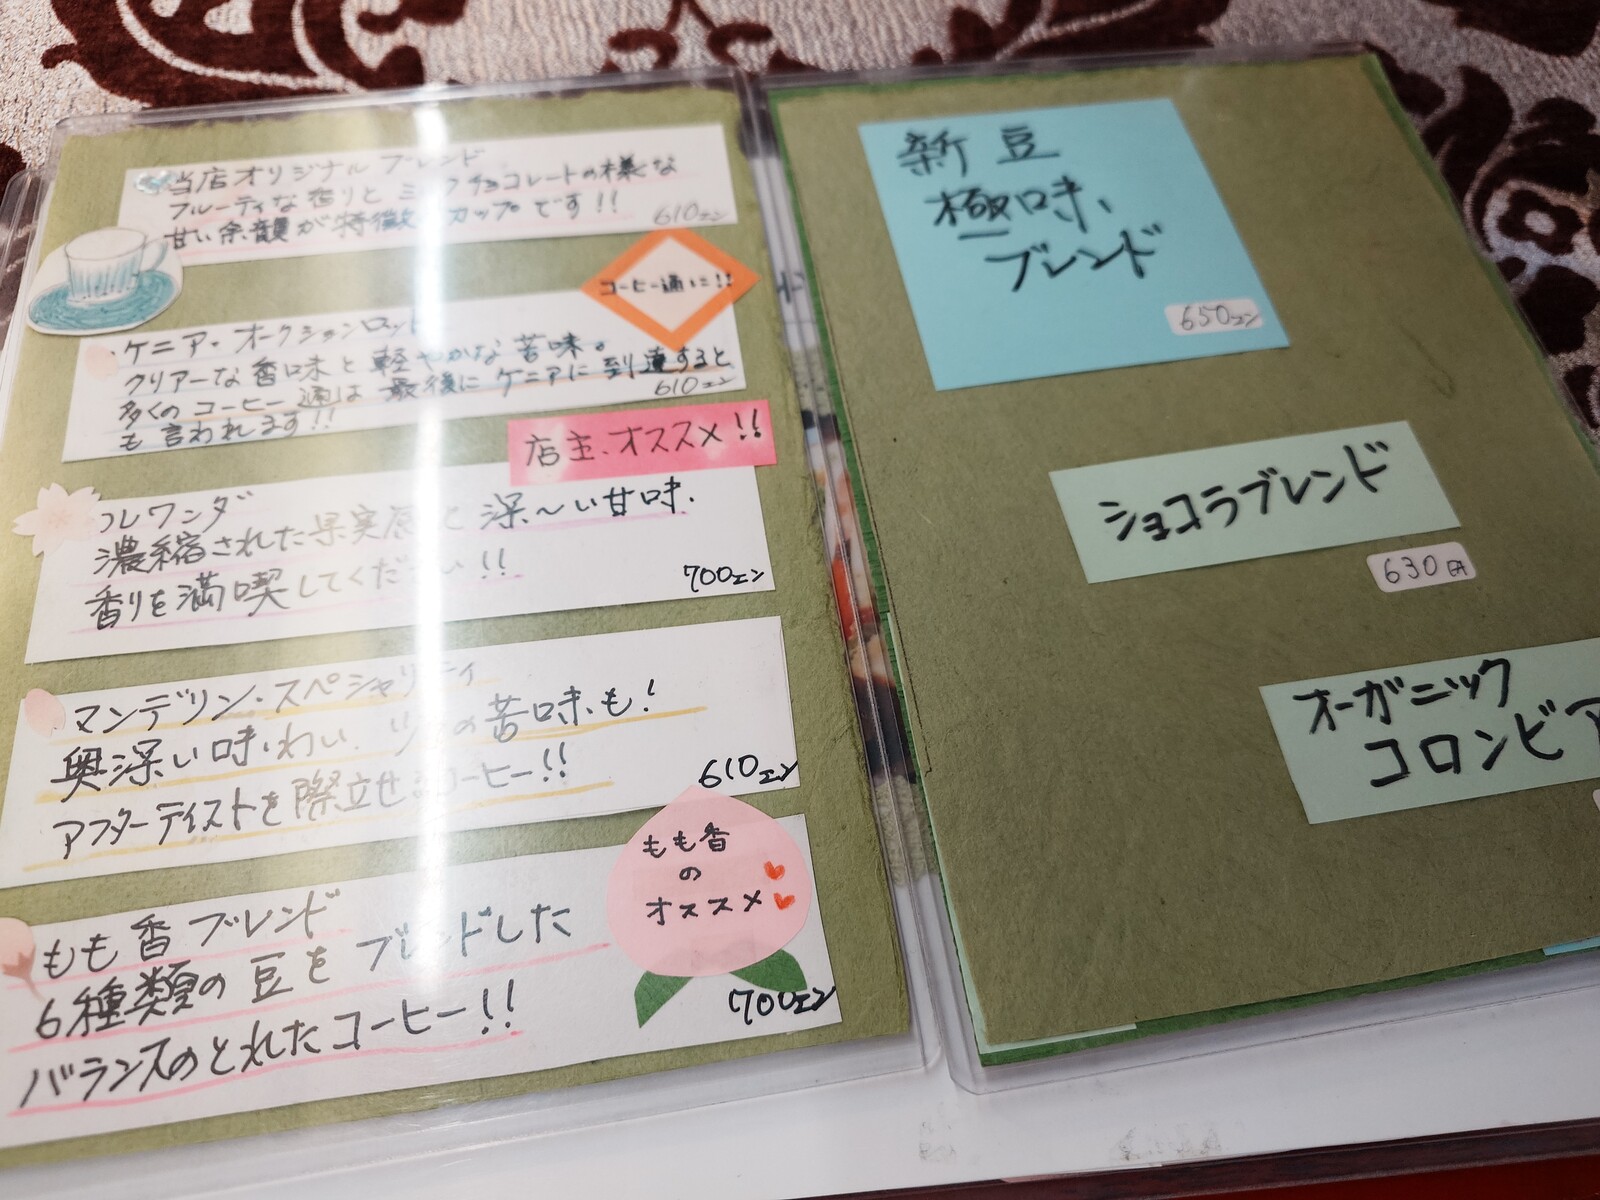 当店オリジナル ブレンド
フルーティな香りと ミルクチョコレートの様な
甘い余韻が特徴 カップです!!
610エン
コーヒー通に!!
ケニア・オークションロット
クリアーな香味と軽やかな苦味。
多くのコーヒー通は最後にケニアに到達すると
も言われます!!
610エン
店主、オススメ!!
ルワンダ
濃縮された果実感と深〜い甘味、
香りを満喫してください!!
700エン
マンデリン・スペシャリティ
奥深い味わい、 の苦味も!
アフターテイストを際立せるコーヒー!!
610エン
もも香
の
オススメ
もも香ブレンド
6種類の豆をブレンドした
バランスのとれたコーヒー!!
700エン
新豆
極味、
ブレンド
650エン
ショコラブレンド
630円
オーガニック
コロンビア